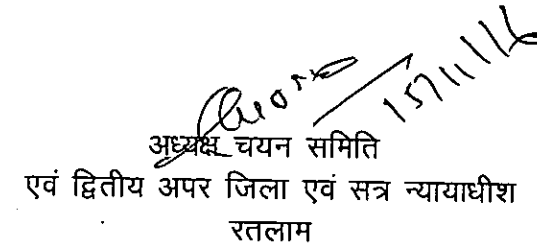 15/11/16
अध्यक्ष चयन समिति
एवं द्वितीय अपर जिला एवं सत्र न्यायाधीश
रतलाम